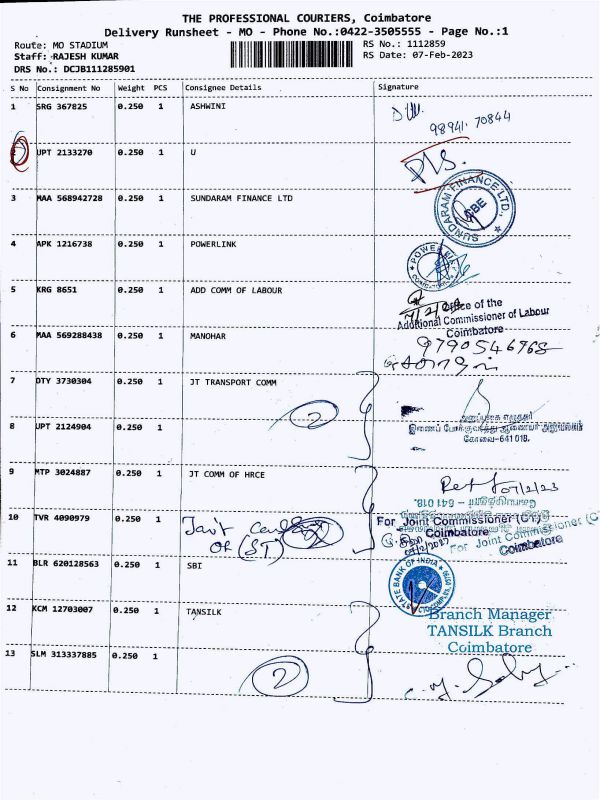 THE PROFESSIONAL COURIERS, Coimbatore
Delivery Runsheet - MO - Phone No.:0422-3505555 - Page No.:1
Route: MO STADIUM
RS No.: 1112859
Staff: RAJESH KUMAR
RS Date: 07-Feb-2023
DRS No.: DCJB111285901
S No Consignment No Weight PCS Consignee Details Signature
1 SRG 367825 0.250 1 ASHWINI
98941 70844
2 UPT 2133270 0.250 1 U
3 MAA 568942728 0.250 1 SUNDARAM FINANCE LTD
SUNDARAM FINANCE LTD.,
CBE
4 APK 1216738 0.250 1 POWERLINK
5 KRG 8651 0.250 1 ADD COMM OF LABOUR
Office of the
Additional Commissioner of Labour
Coimbatore
6 MAA 569288438 0.250 1 MANOHAR
9790546768
7 DTY 3730304 0.250 1 JT TRANSPORT COMM
2
8 UPT 2124904 0.250 1
இணைப் போக்குவரத்து ஆணையர் அலுவலகம்
கோவை-641 018.
9 MTP 3024887 0.250 1 JT COMM OF HRCE
07/2/23
641 018.
10 TVR 4090979 0.250 1
of (ST)
2
For Joint Commissioner (CT)
Coimbatore
For Joint Commissioner (CT)
Coimbatore
11 BLR 620128563 0.250 1 SBI
STATE BANK OF INDIA
12 KCM 12703007 0.250 1 TANSILK
Branch Manager
TANSILK Branch
Coimbatore
13 SLM 313337885 0.250 1
2